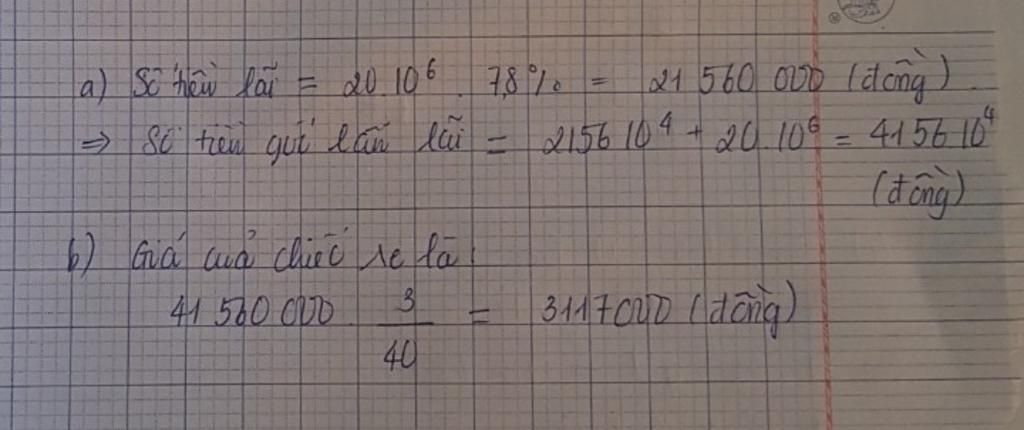 a) Số tiền lãi = 20.10⁶. 7,8% = 21 560 000 (đồng)
⇒ Số tiền gửi lẫn lãi = 2156.10⁴ + 20.10⁶ = 4156.10⁴
(đồng)
b) Giá của chiếc xe là:
41 560 000 . 3/40 = 3117000 (đồng)